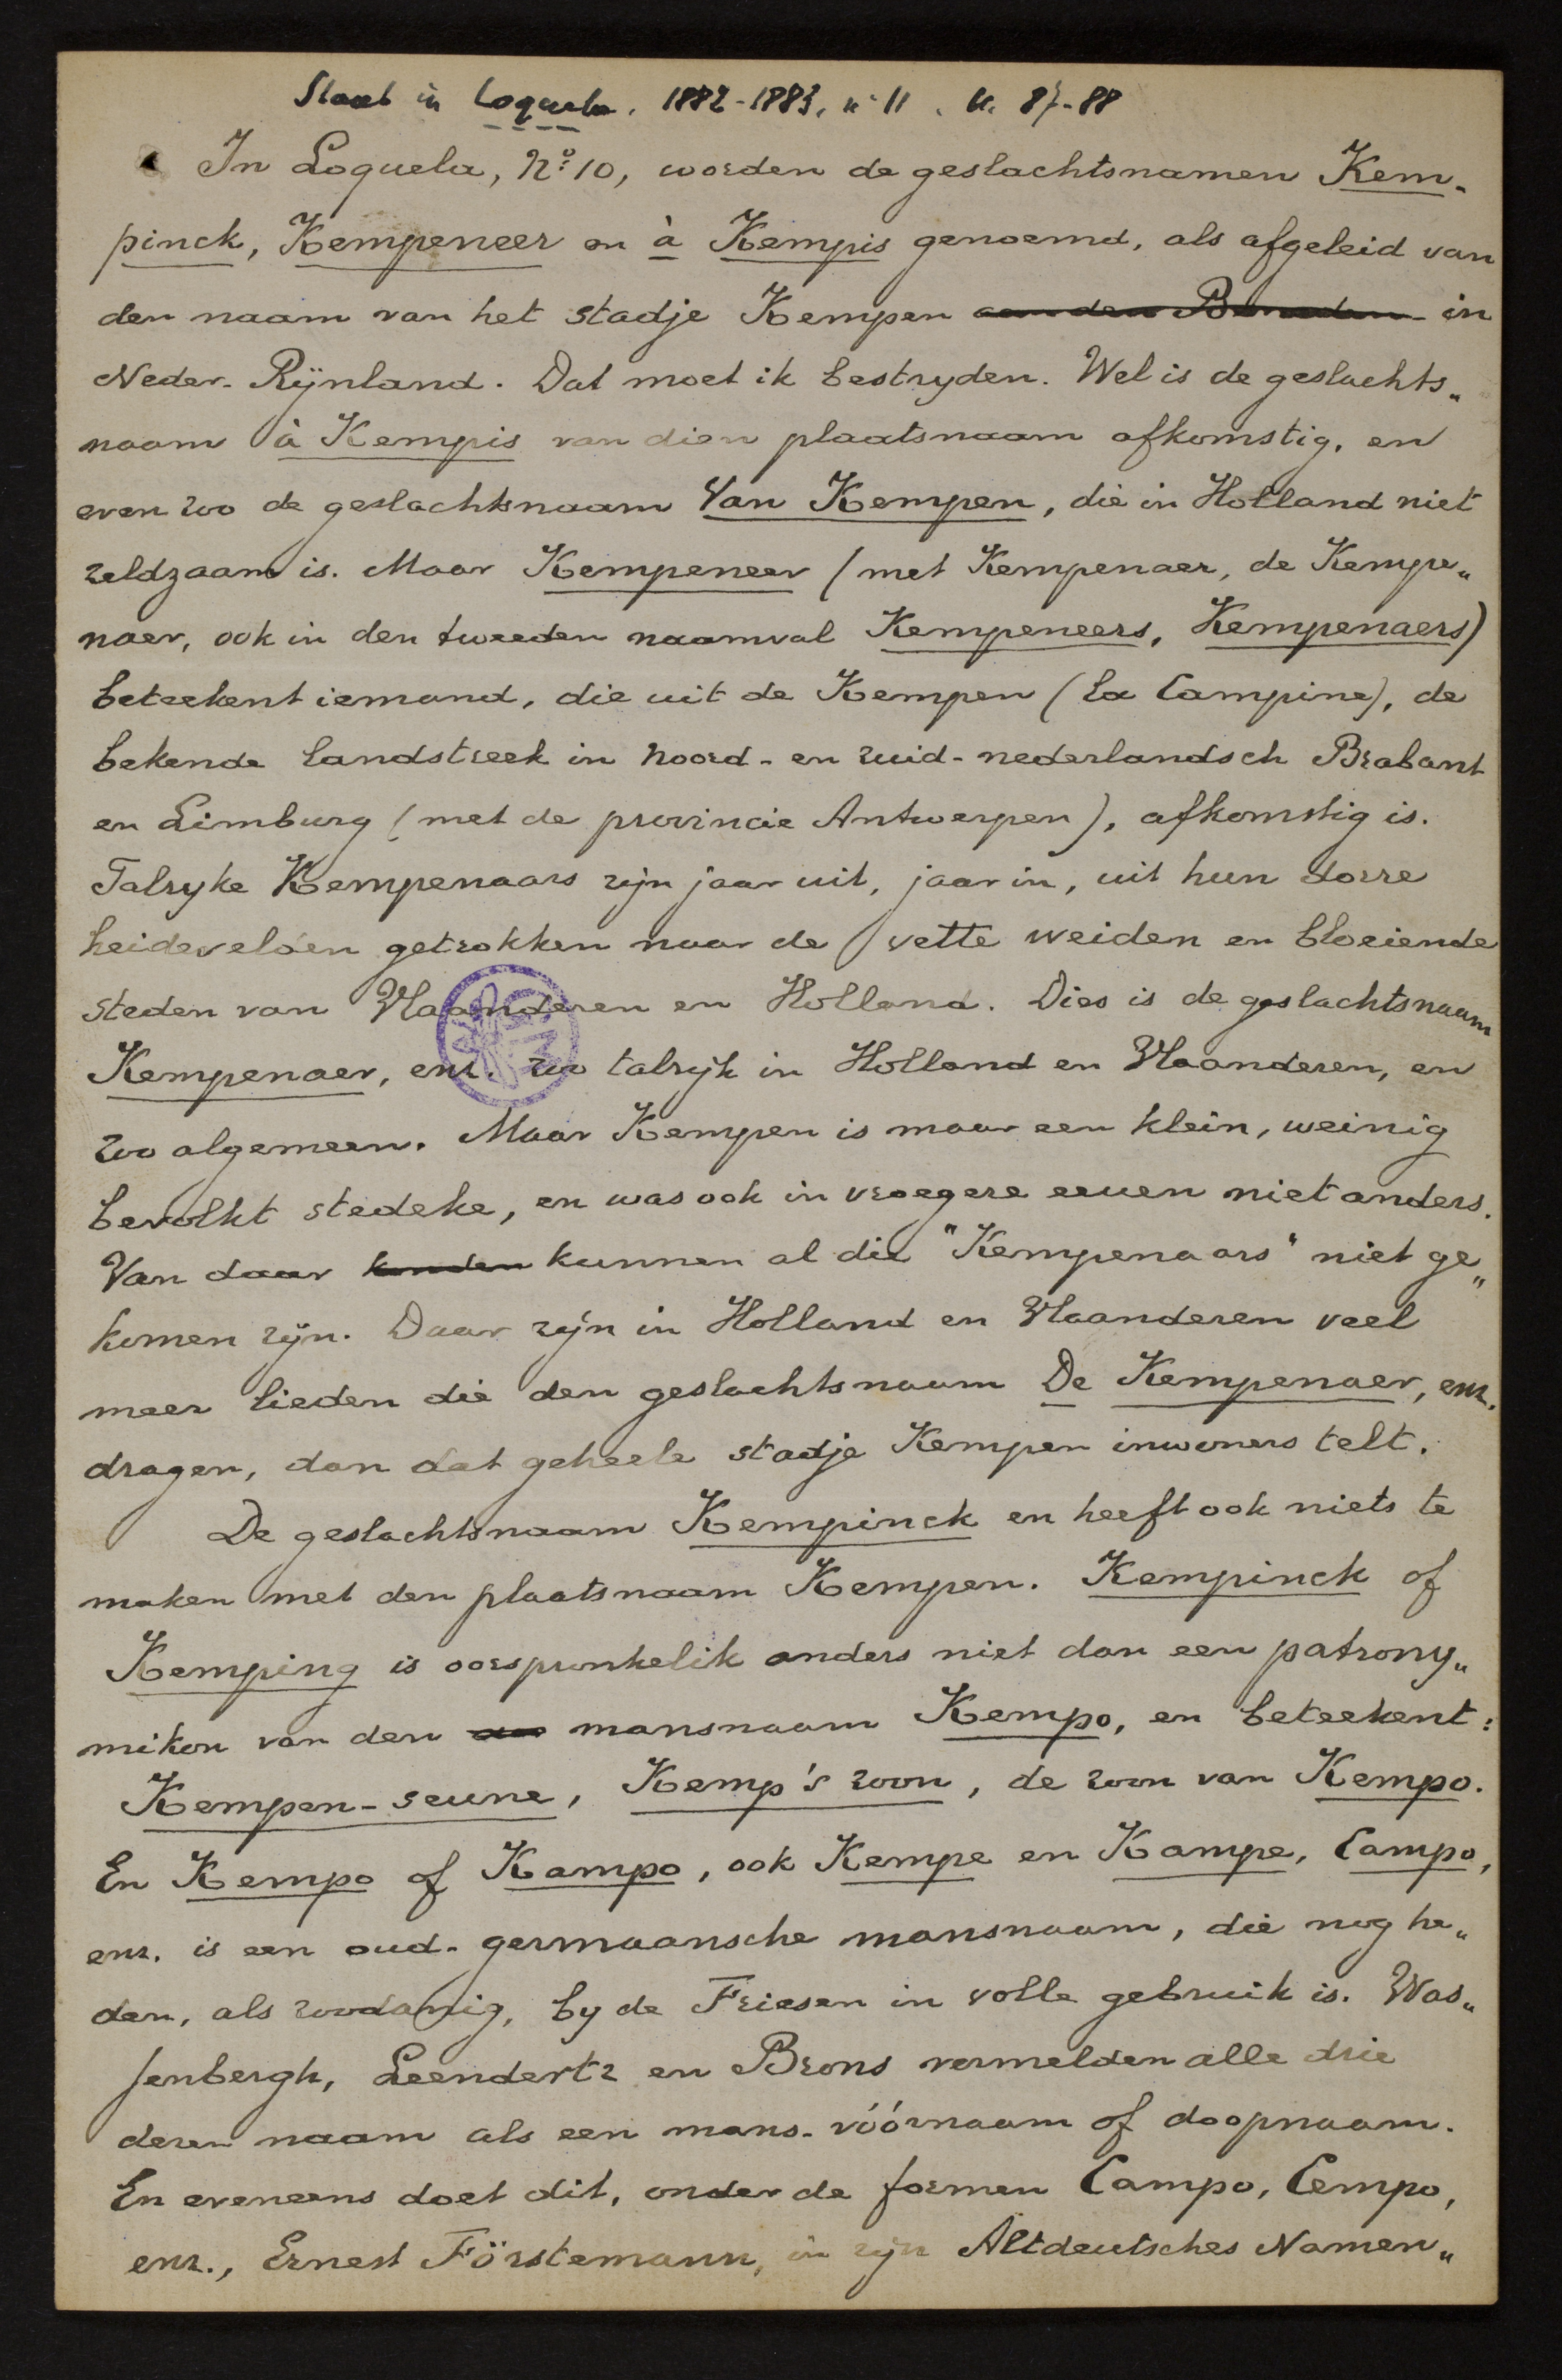 Staat in Loquela. 1882-1883, n° 11. bl. 87-88
In Loquela, No 10, worden de geslachtsnamen Kem-
pinck, Kempeneer en à Kempis genoemd, als afgeleid van
den naam van het stadje Kempen aan den Beneden- in
Neder-Rijnland. Dat moet ik bestryden. Wel is de geslachts„
naam à Kempis van dien plaatsnaam afkomstig, en
even zoo de geslachtsnaam Van Kempen, die in Holland niet
zeldzaam is. Maar Kempeneer (met Kempenaer, de Kempe„
naer, ook in den tweeden naamval Kempeneers, Kempenaers)
beteekent iemand, die uit de Kempen (la Campine), de
bekende landstreek in noord- en zuid-nederlandsch Brabant
en Limburg (met de provincie Antwerpen), afkomstig is.
Talryke Kempenaars zijn jaar uit, jaar in, uit hun dorre
heidevelden getrokken naar de vette weiden en bloeiende
steden van Vlaanderen en Holland. Dies is de geslachtsnaam
Kempenaer, enz. zoo talrijk in Holland en Vlaanderen, en
zoo algemeen. Maar Kempen is maar een klein, weinig
bevolkt stedeke, en was ook in vroegere eeuen niet anders.
Van daar konden kunnen al die "Kempenaars" niet ge„
komen zijn. Daar zijn in Holland en Vlaanderen veel
meer lieden die den geslachtsnaam De Kempenaer, enz.
dragen, dan dat geheele stadje Kempen inwoners telt.
De geslachtsnaam Kempinck en heeft ook niets te
maken met den plaatsnaam Kempen. Kempinck of
Kemping is oorspronkelik anders niet dan een patrony„
mikon van den mansnaam Kempo, en beteekent:
Kempen-seune, Kemp's zoon, de zoon van Kempo.
En Kempo of Kampo, ook Kempe en Kampe, Campo,
enz. is een oud-germaansche mansnaam, die nog he„
den, als zoodanig, by de Friesen in volle gebruik is. Was„
senbergh, Leendertz en Brons vermelden alle drie
dezen naam als een mans-vóórnaam of doopnaam.
En eveneens doet dit, onder de formen Campo, Cempo,
enz., Ernest Förstemann, in zijn Altdeutsches Namen„